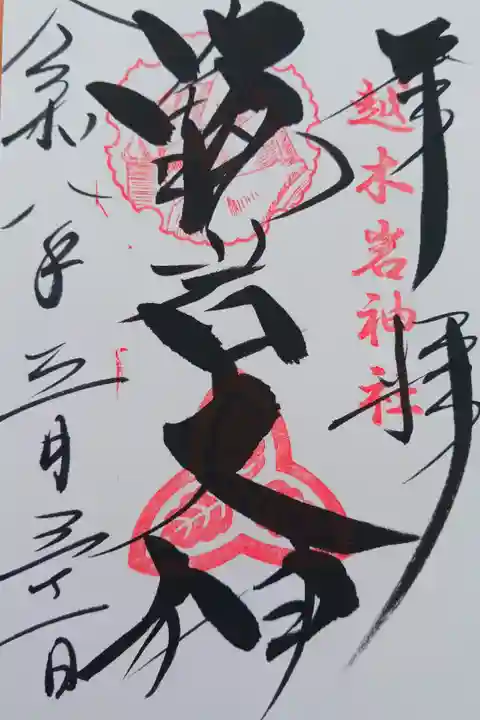 奉拝
越木岩神社
甑岩大神
令和八年三月三十一日